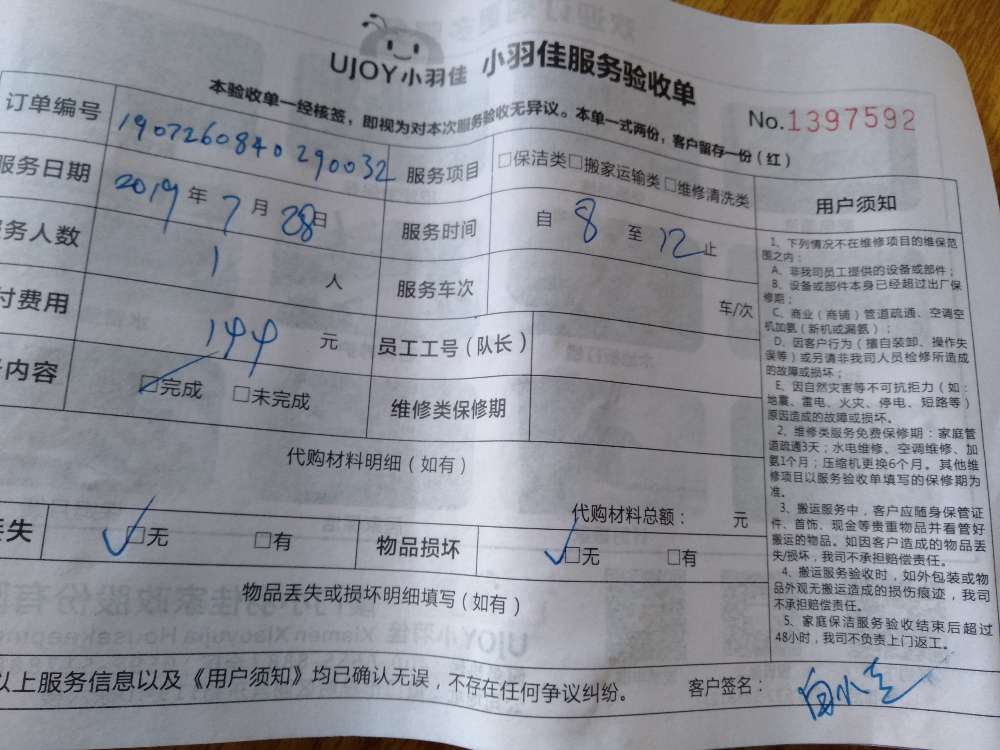 UJOY小羽佳 小羽佳服务验收单
本验收单一经核签，即视为对本次服务验收无异议。本单一式两份，客户留存一份（红）
No.1397592
订单编号 1907260840290032 服务项目 □保洁类□搬家运输类□维修清洗类
服务日期 2019年7月28日 服务时间 自8至12止
务人数 1人 服务车次 车/次
付费用 144元 员工工号（队长）
内容 □完成 □未完成 维修类保修期
代购材料明细（如有）
代购材料总额： 元
丢失 □无 □有 物品损坏 □无 □有
物品丢失或损坏明细填写（如有）
以上服务信息以及《用户须知》均已确认无误，不存在任何争议纠纷。 客户签名：
用户须知
1、下列情况不在维修项目的维保范
围之内：
A、非我司员工提供的设备或部件；
B、设备或部件本身已经超过出厂保
修期；
C、商业（商铺）管道疏通、空调空
机加氨（新机或漏氨）；
D、因客户行为（擅自装卸、操作失
误等）或另请非我司人员检修所造成
的故障或损坏；
E、因自然灾害等不可抗拒力（如：
地震、雷电、火灾、停电、短路等）
原因造成的故障或损坏。
2、维修类服务免费保修期：家庭管
道疏通3天；水电维修、空调维修、加
氨1个月；压缩机更换6个月。其他维
修项目以服务验收单填写的保修期为
准。
3、搬运服务中，客户应随身保管证
件、首饰、现金等贵重物品并看管好
搬运的物品。如因客户造成的物品丢
失/损坏，我司不承担赔偿责任。
4、搬运服务验收时，如外包装或物
品外观无搬运造成的损伤痕迹，我司
不承担赔偿责任。
5、家庭保洁服务验收结束后超过
48小时，我司不负责上门返工。